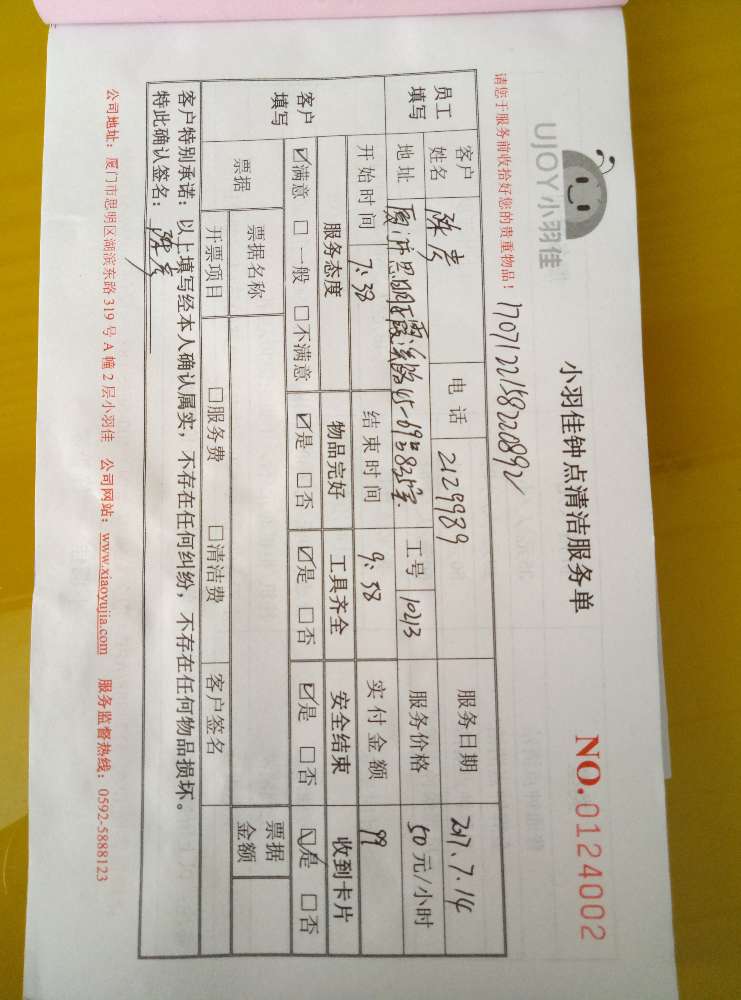 UJOY小羽佳
小羽佳钟点清洁服务单
NO.0124002
请您于服务前收拾好您的贵重物品!
170712215822089
员工填写 客户姓名 陈 电话 2129989 服务日期 2017.7.14
地址 厦门市思明区霞溪路45-69号825室 工号 10213 服务价格 50元/小时
开始时间 7:38 结束时间 9:38 实付金额 99
客户填写 服务态度 物品完好 工具齐全 安全结束 收到卡片
☑满意 □一般 □不满意 ☑是 □否 ☑是 □否 ☑是 □否 ☑是 □否
票据 票据名称 票据金额
开票项目 □服务费 □清洁费 客户签名
客户特别承诺:以上填写经本人确认属实,不存在任何纠纷,不存在任何物品损坏。
特此确认签名:陈
公司地址:厦门市思明区湖滨东路319号A幢2层小羽佳 公司网站:www.xiaoyujia.com 服务监督热线:0592-5888123